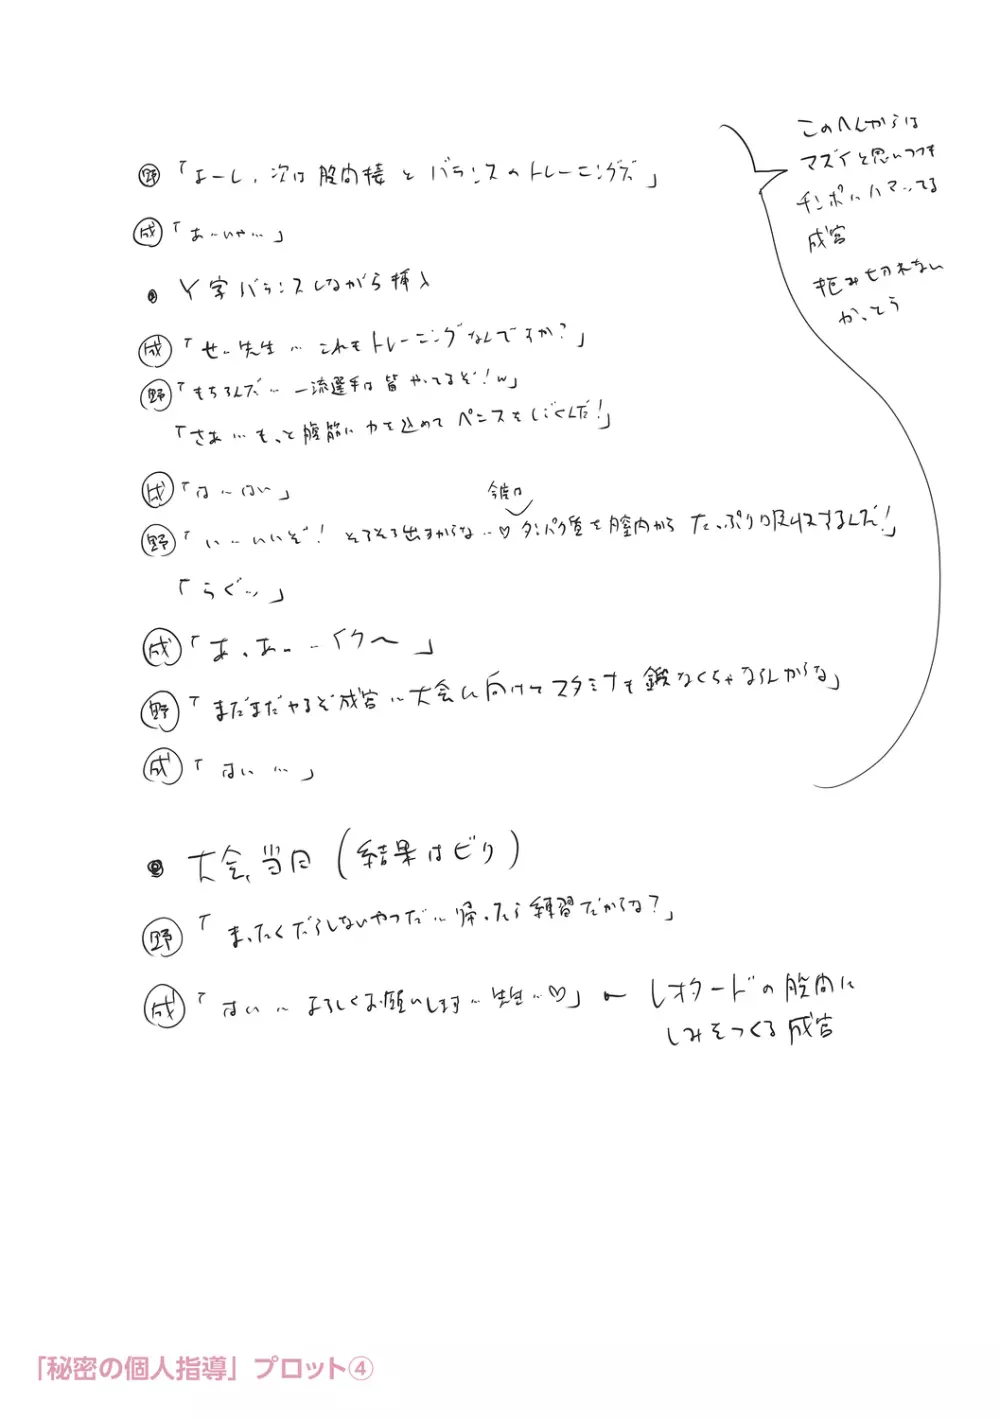 野「よーし、次は股関節とバランスのトレーニングだ」
成「あ…いや…」
・Y字バランスしながら挿入
成「せ…先生… これもトレーニングなんですか？」
野「もちろんだ… 一流選手は皆やってるぞ！w」
「さあ…もっと腹筋に力を込めてペニスをしごくんだ！」
成「は…はい」
今度は
野「い…いいぞ！ そろそろ出すからな…♡ タンパク質を膣内からたっぷり吸収するんだ！」
成「あ、あ…イク〜」
野「まだまだやるぞ成宮…大会に向けてスタミナも鍛えなくちゃならんからな」
成「はい…」
このへんからは
マズイと思いつつも
チンポにハマってる
成宮
拒み切れない
かっとう
・大会、当日（結果はビリ）
野「まったくだらしないやつだ… 帰ったら練習だからな？」
成「はい… よろしくお願いします… 先生…♡」← レオタードの股間に
しみをつくる成宮
「秘密の個人指導」プロット④